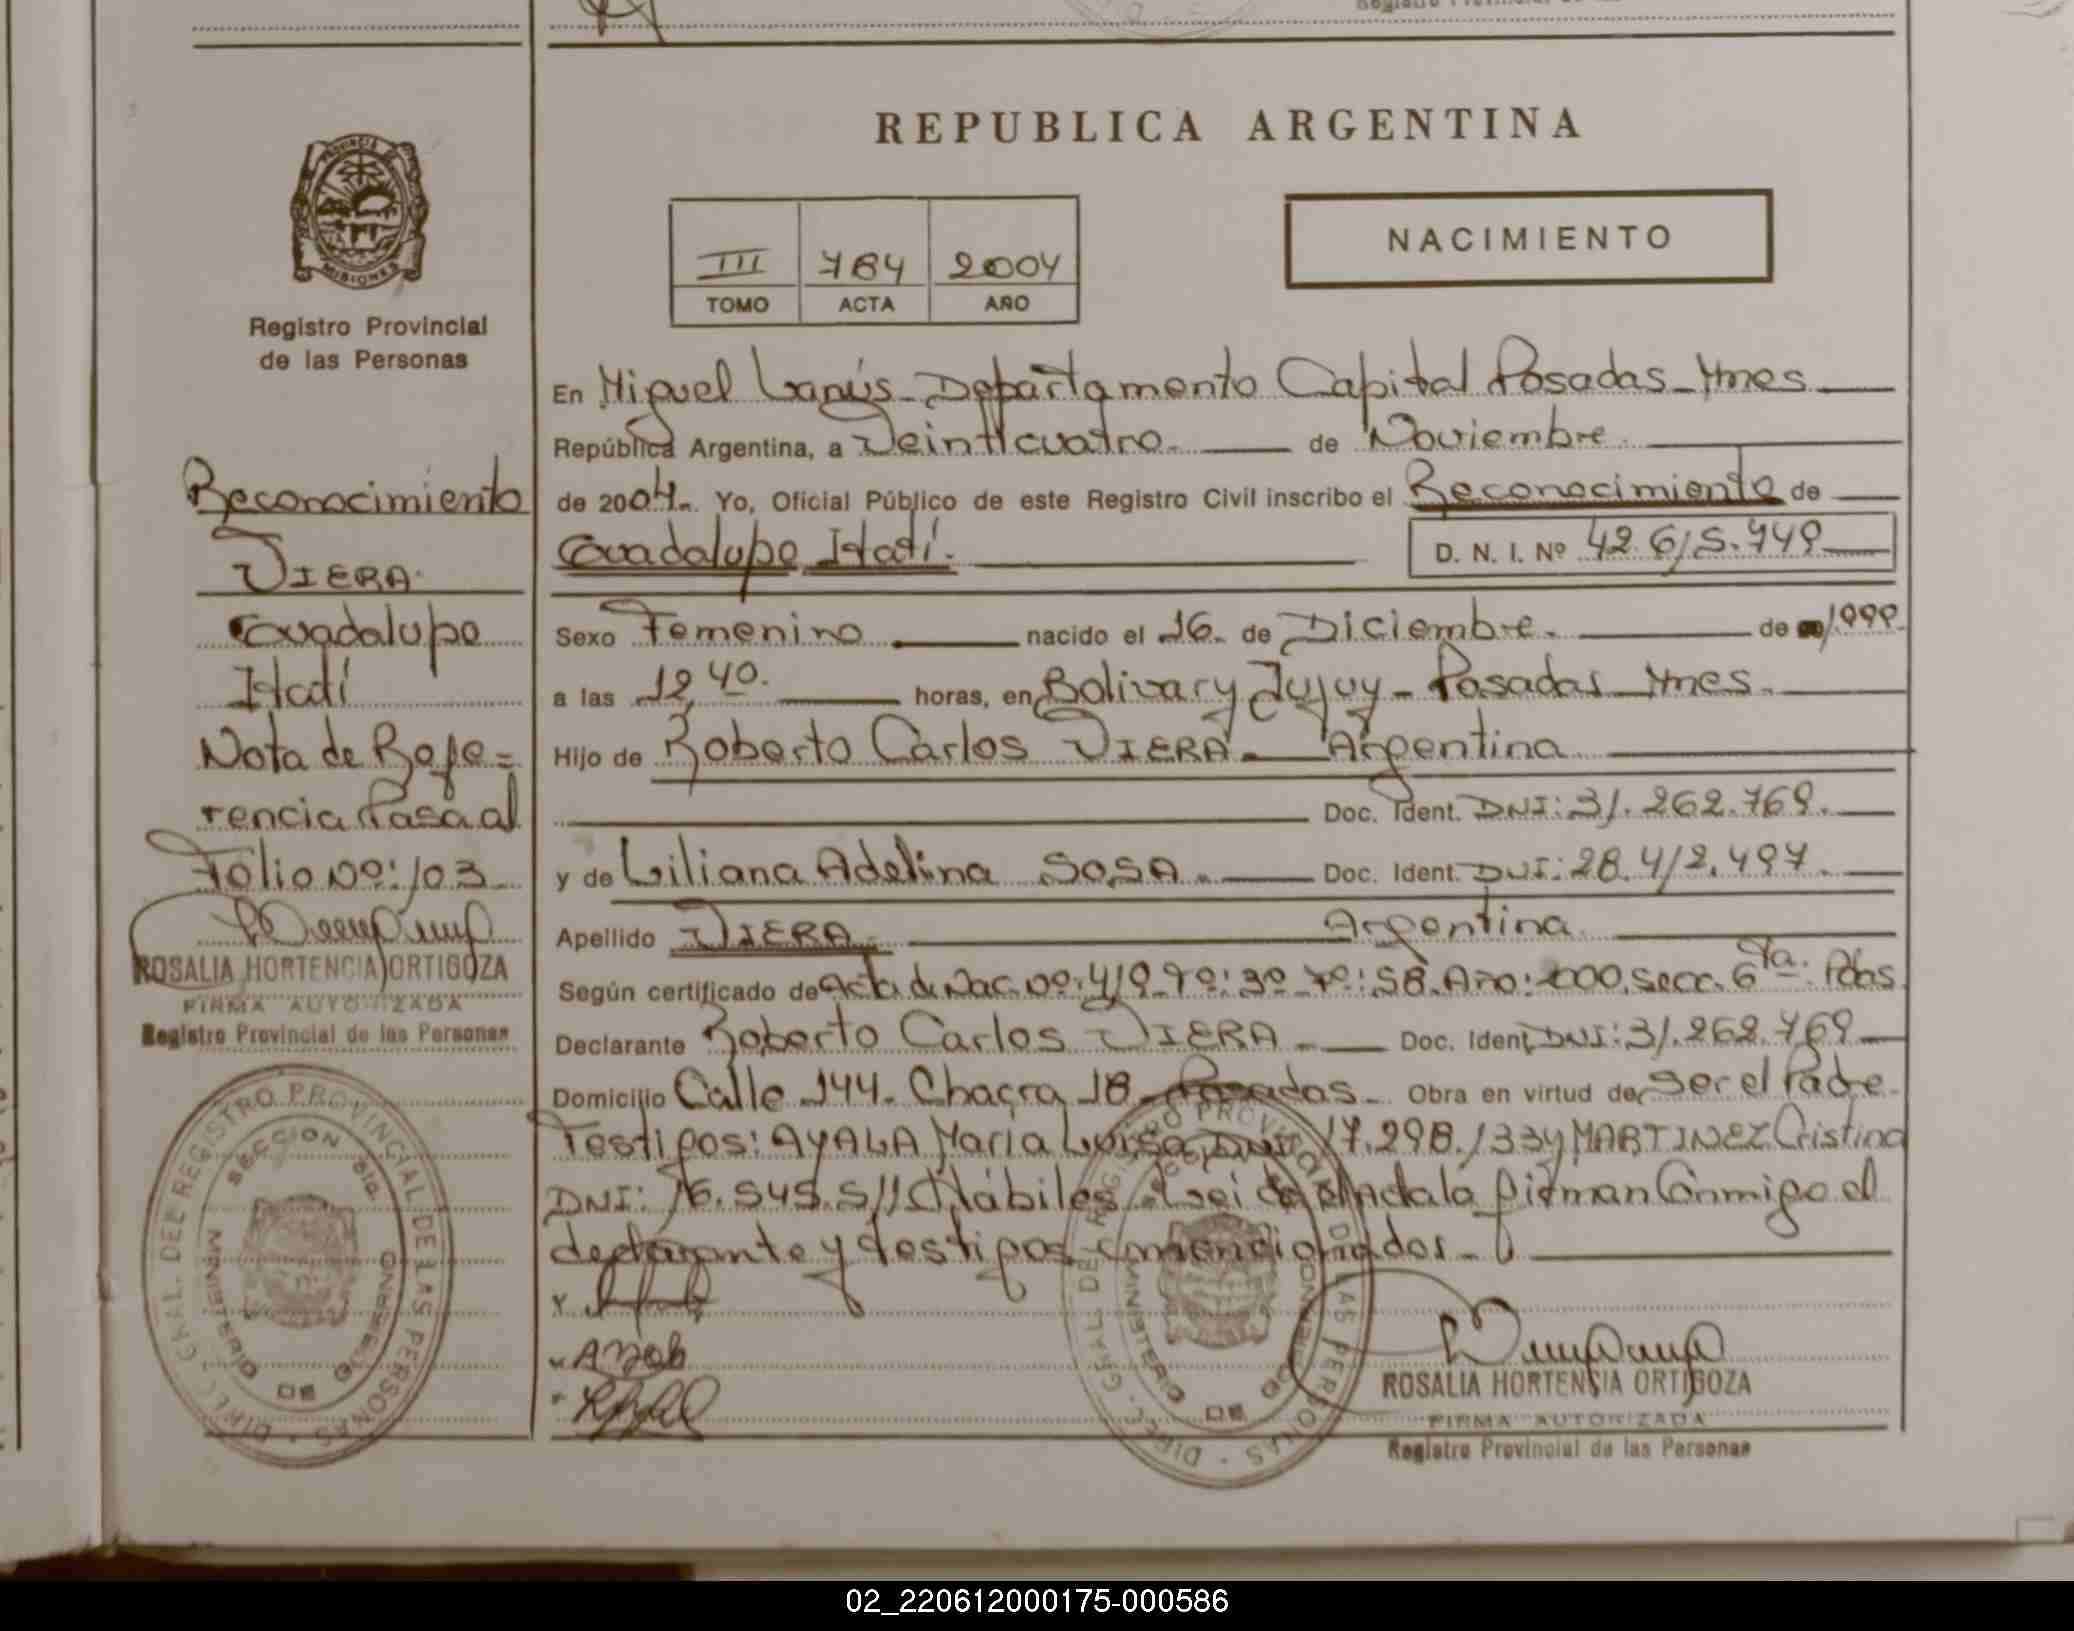 REPUBLICA ARGENTINA
NACIMIENTO
III 784 2004
TOMO ACTA AÑO
PROVINCIA DE
MISIONES
Registro Provincial
de las Personas
Reconocimiento
VIERA
Guadalupe
Itatí
Nota de Refe=
rencia Pasa al
Folio Nº: 103
ROSALIA HORTENCIA ORTIGOZA
FIRMA AUTORIZADA
Registro Provincial de las Personas
DIREC. GRAL. DEL REGISTRO PROVINCIAL DE LAS PERSONAS
SECCION 8va.
MINISTERIO DE GOBIERNO
En Miguel Lanús - Departamento Capital Posadas - Mnes
República Argentina, a Veinticuatro. de Noviembre.
de 2004. Yo, Oficial Público de este Registro Civil inscribo el Reconocimiento de
Guadalupe Itatí.
D. N. I. Nº 42.615.749
Sexo Femenino nacido el 16. de Diciembre. de 1999.
a las 12,40. horas, en Bolivar y Jujuy - Posadas Mnes.
Hijo de Roberto Carlos VIERA - Argentina
Doc. Ident. DNI: 31.262.769.
y de Liliana Adelina SOSA. Doc. Ident. DNI: 28.412.497.
Apellido VIERA. Argentina.
Según certificado de Acta de Nac. Nº: 419. Tº: 3º Fº: 58. Año: 2000. Secc. 6ta. Pdas.
Declarante Roberto Carlos VIERA. Doc. Ident. DNI: 31.262.769
Domicilio Calle 144. Chacra 18 Posadas. Obra en virtud de Ser el Padre.
Testigos: AYALA María Luisa, DNI 17.298.133 y MARTINEZ Cristina
DNI: 16.545.511 Hábiles. Leida el Acta la firman Conmigo el
declarante y testigos mencionados.
DIREC. GRAL. DEL REGISTRO PROVINCIAL DE LAS PERSONAS
MINISTERIO DE GOBIERNO
ROSALIA HORTENSIA ORTIGOZA
FIRMA AUTORIZADA
Registro Provincial de las Personas
02_220612000175-000586